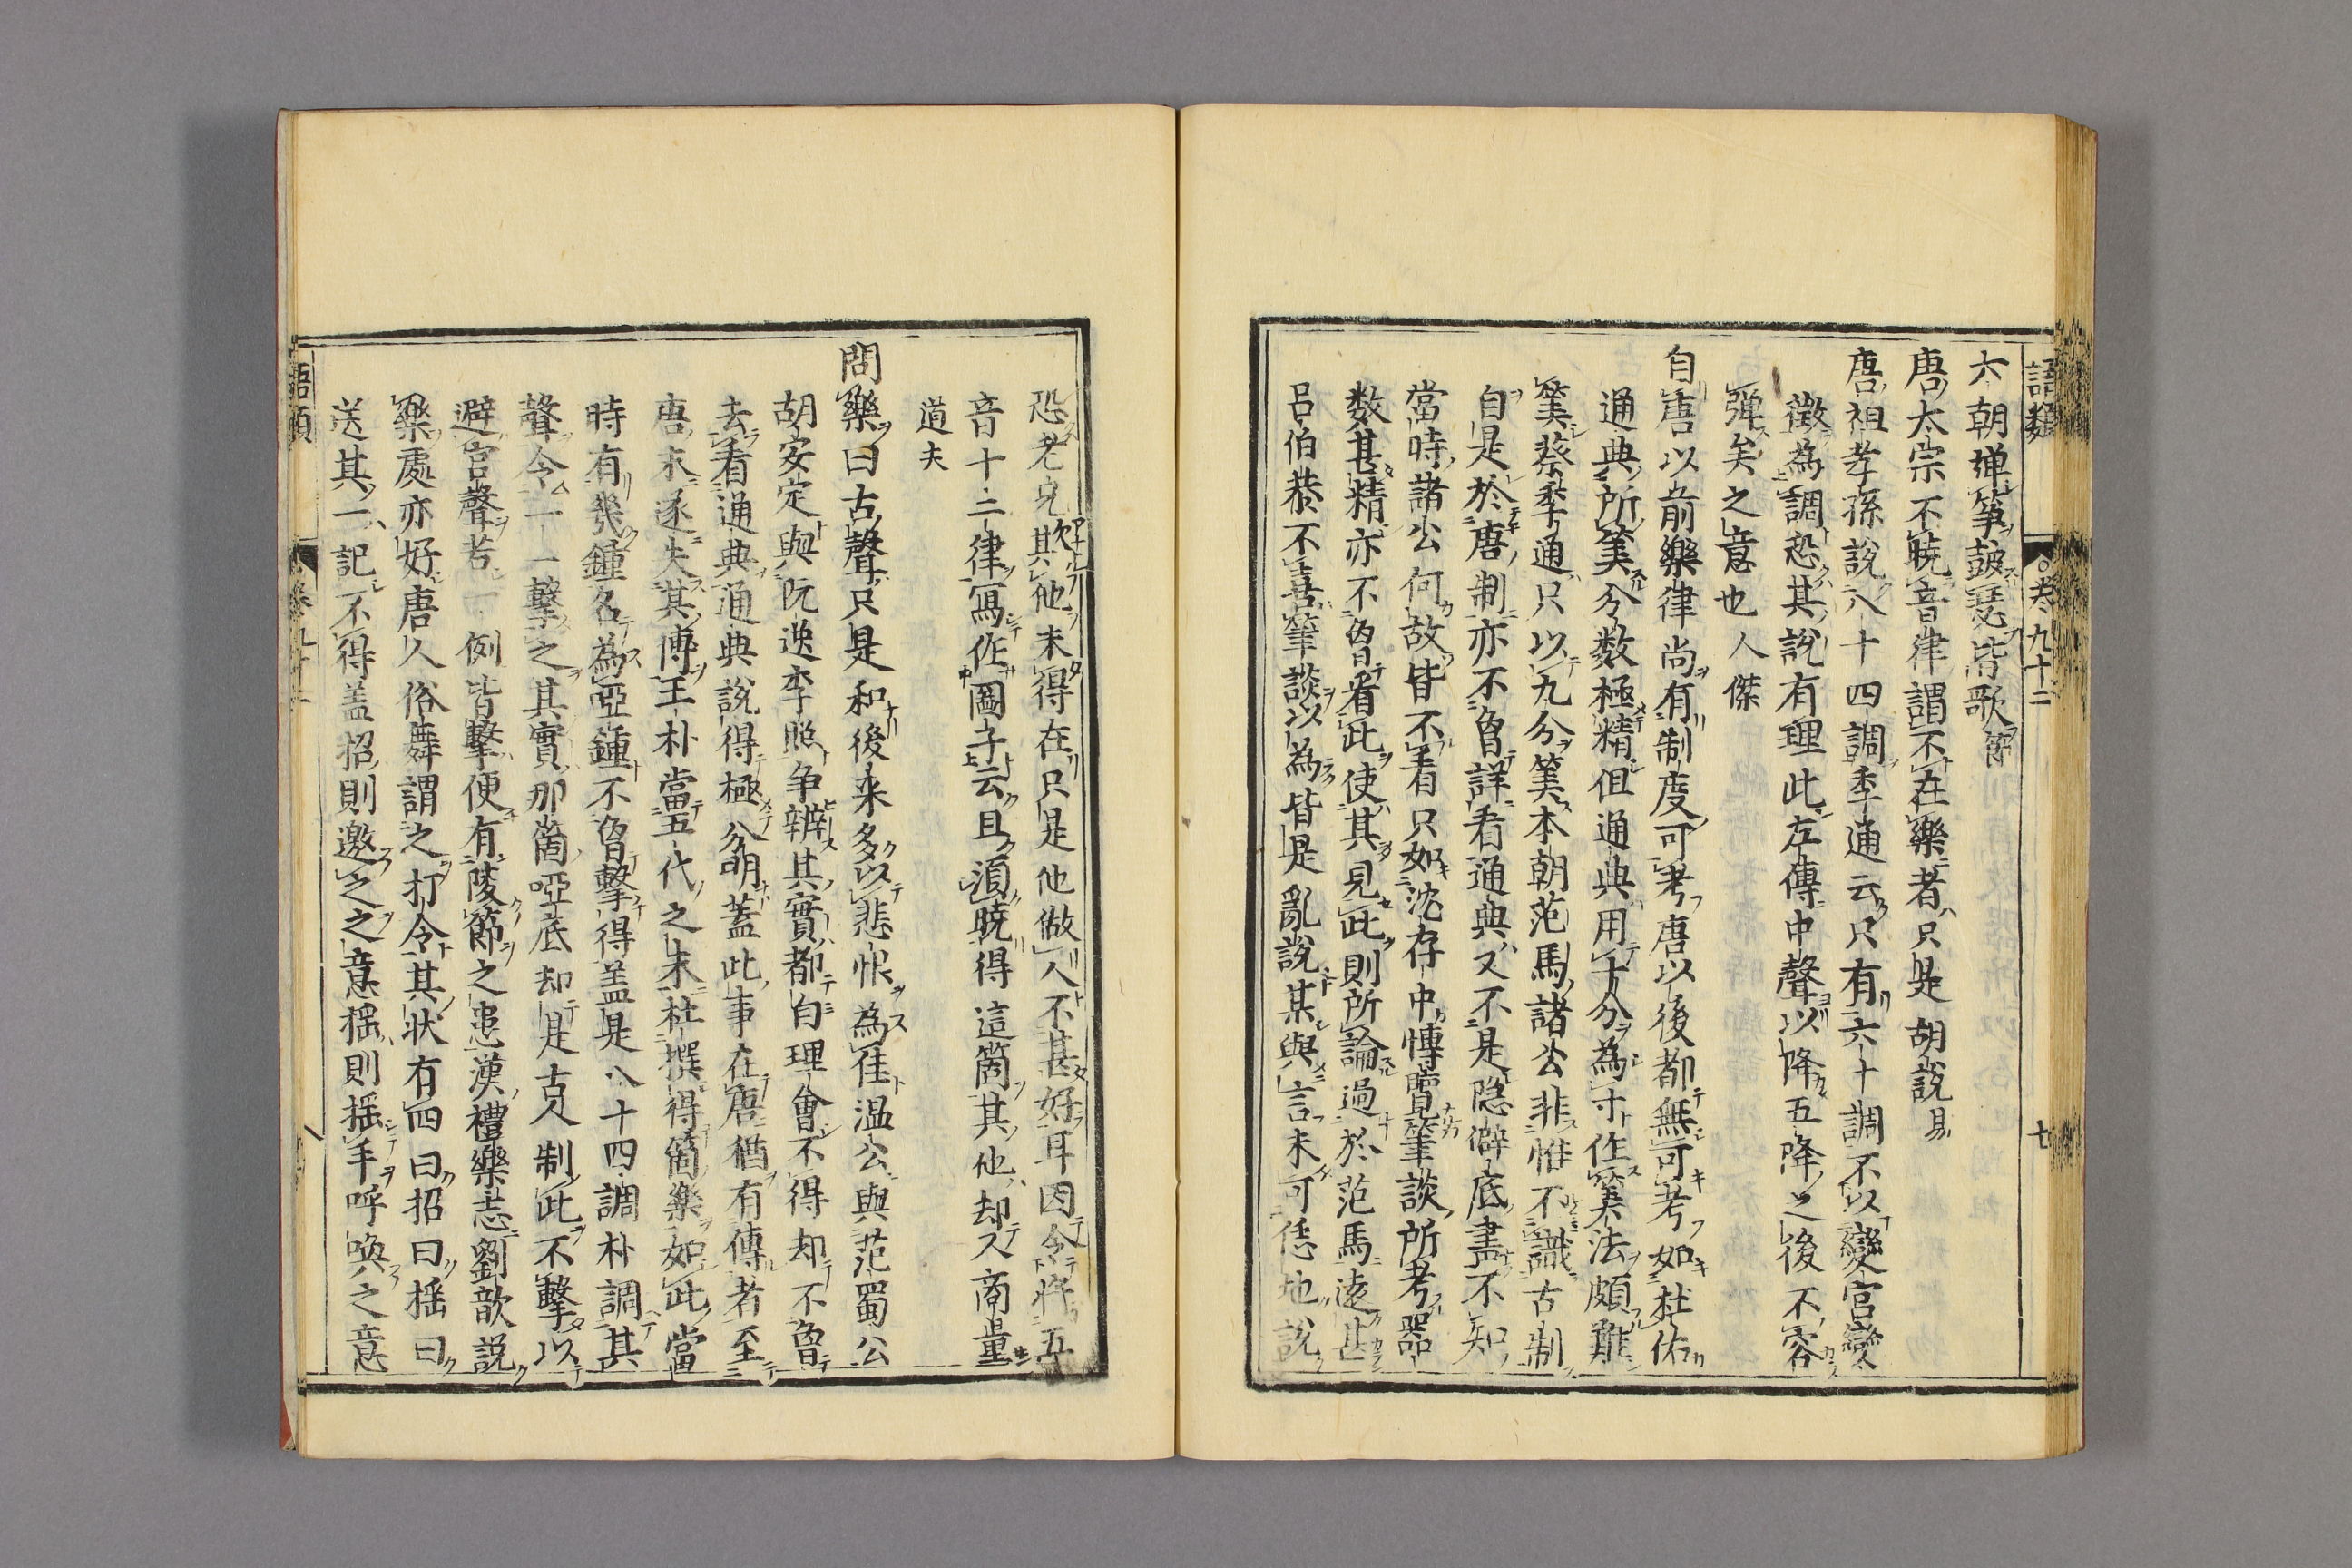 語類
卷九十二
七
六朝彈箏鼓瑟皆歌節
唐太宗不曉音律謂不在樂者只是胡說易
唐祖孝孫說八十四調季通云只有六十調不以變宮變
徵為調恐其說有理此左傳中聲以降五降之後不容
彈矣之意也人傑
自唐以前樂律尚有制度可考唐以後都無可考如杜佑
通典所筭分数極精但通典用十分為寸作筭法頗難
筭蔡季通只以九分筭本朝范馬諸公非惟不識古制
自是於唐制亦不曾詳看通典又不是隐僻底書不知
當時諸公何故皆不看只如沈存中博覽筆談所考器
数甚精亦不曾看此使其見此則所論過於范馬遠甚
呂伯恭不喜筆談以為皆是亂說某與言未可恁地說
恐老兄欺其他未得在只是他做人不甚好耳因令将五
音十二律寫作圖子云且須曉得這箇其他却又商量
道夫
問樂曰古聲只是和後来多以悲恨為佳温公與范蜀公
胡安定與阮逸李照争辨其實都自理會不得却不曾
去看通典通典說得極分明蓋此事在唐猶有傳者至
唐末遂失其傳王朴當五代之末杜撰得箇樂如此當
時有幾鍾名為啞鍾不曾擊得盖是八十四調朴調其
聲令一一擊之其實那箇啞底却是古人制此不擊以
避宮聲若一例皆擊便有陵節之患漢禮樂志劉歆説
樂處亦好唐人俗舞謂之打令其状有四曰招曰揺曰
送其一記不得盖招則邀之之意揺則揺手呼喚之意
語類
卷九十二